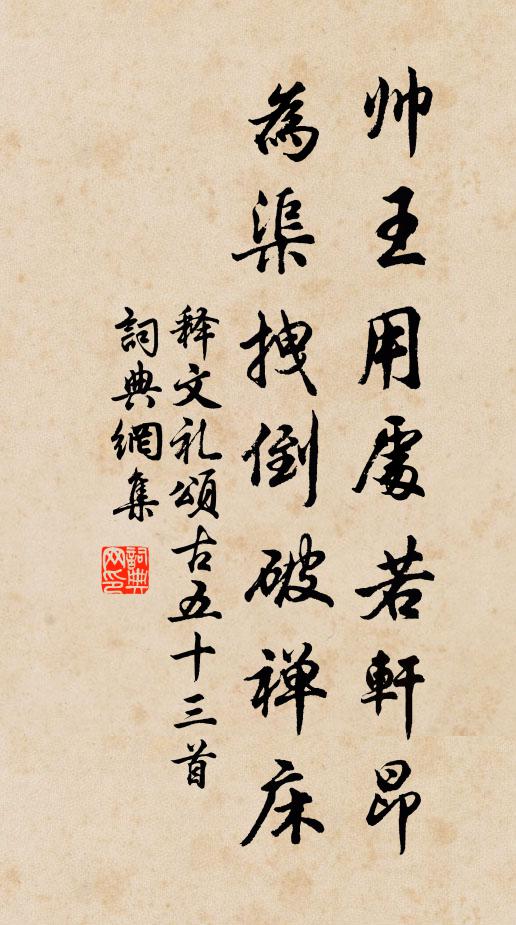 帅王用處若軒昂
為渠拽倒破禅床
释文礼頌古五十三首
詞典網集
詞典网印